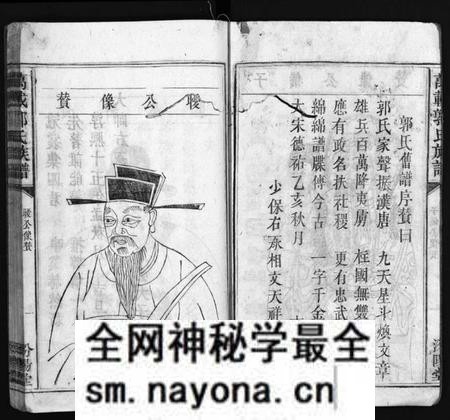 萬載郭氏族譜
郭氏舊譜序贊曰
郭氏家聲振漢唐 九天星斗煥文章
雄兵百萬降夷虜 國無雙
應有政名扶社稷 更有忠武
綿綿譜牒傳今古 一字千金
大宋德祐乙亥秋月
少保右丞相文天祥
公像贊
萬載郭氏族譜
公像贊
汾陽堂
全网神秘学最全
sm.nayona.cn